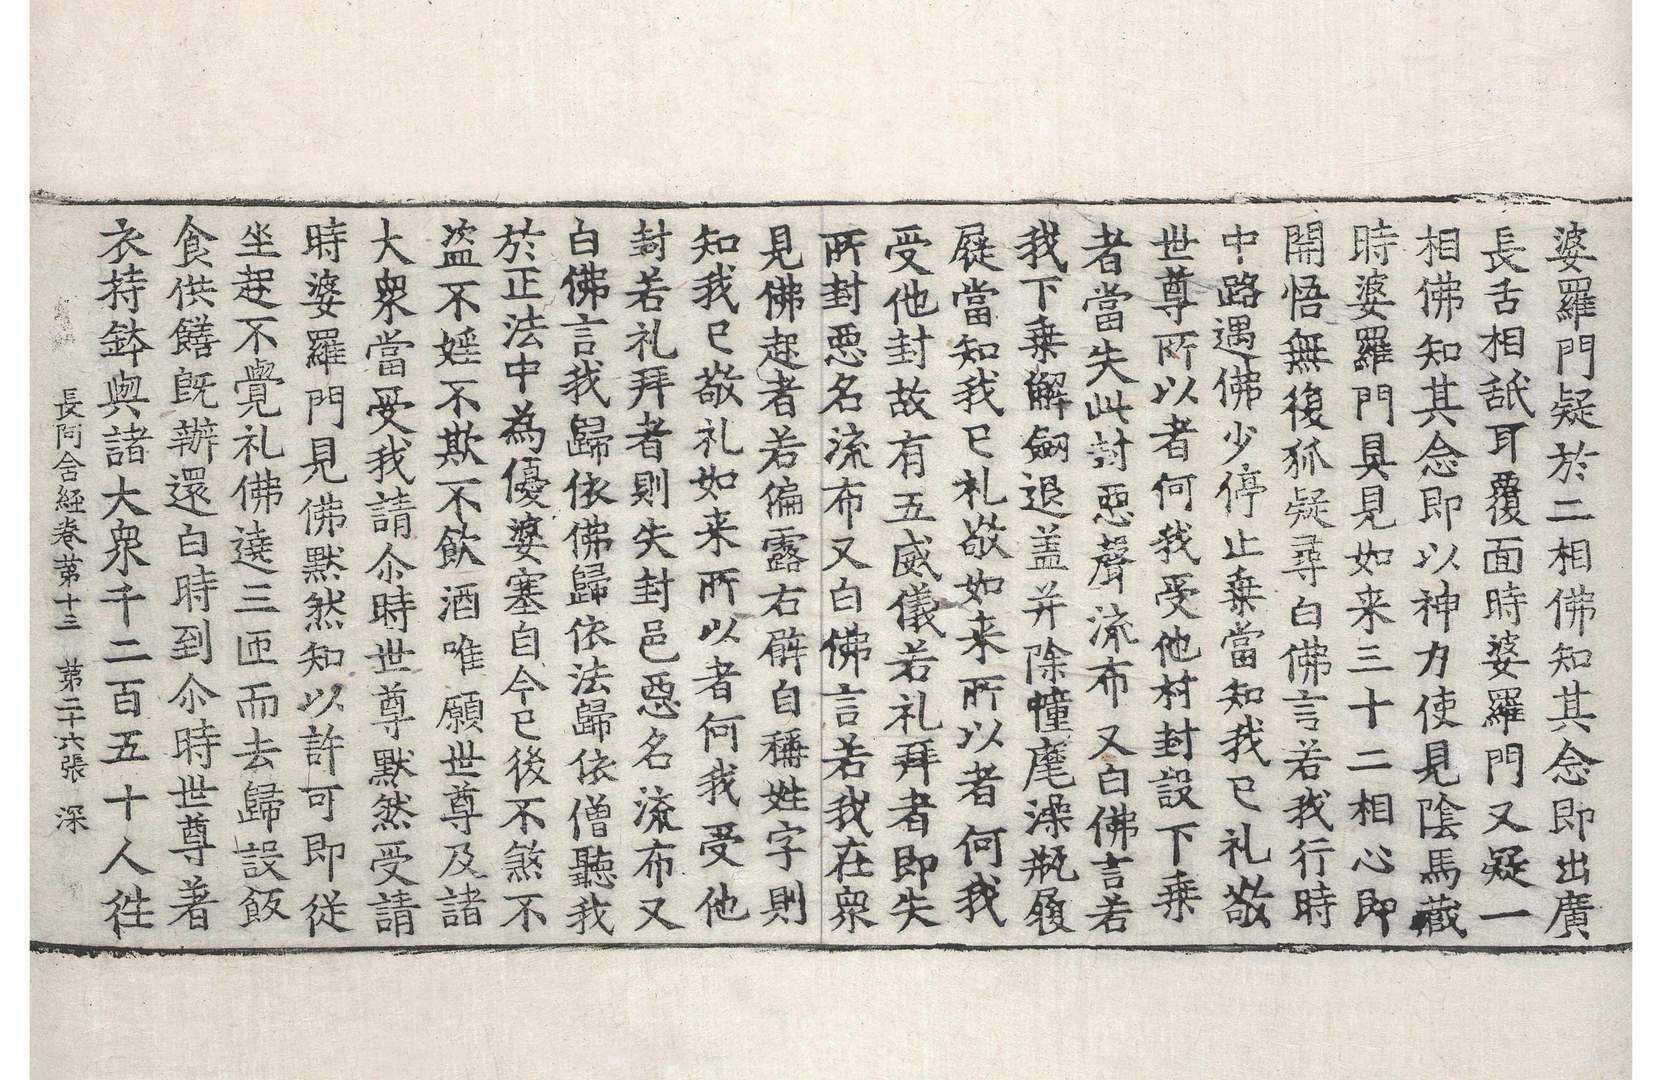 婆羅門疑於二相佛知其念即出廣
長舌相舐耳覆面時婆羅門又疑一
相佛知其念即以神力使見陰馬藏
時婆羅門具見如来三十二相心即
開悟無復狐疑尋白佛言若我行時
中路遇佛少停止乗當知我已礼敬
世尊所以者何我受他村封設下乗
者當失此封惡聲流布又白佛言若
我下乗解劒退盖并除幢麾澡瓶履
屣當知我已礼敬如来所以者何我
受他封故有五威儀若礼拜者即失
所封惡名流布又白佛言若我在衆
見佛起者若偏露右臂自稱姓字則
知我已敬礼如来所以者何我受他
封若礼拜者則失封邑惡名流布又
白佛言我歸依佛歸依法歸依僧聽我
於正法中為優婆塞自今已後不煞不
盗不婬不欺不飲酒唯願世尊及諸
大衆當受我請尒時世尊默然受請
時婆羅門見佛默然知以許可即従
坐起不覺礼佛遶三匝而去歸設飯
食供饍旣辦還白時到尒時世尊著
衣持鉢與諸大衆千二百五十人徃
長阿含経卷苐十三 苐二十六張 深